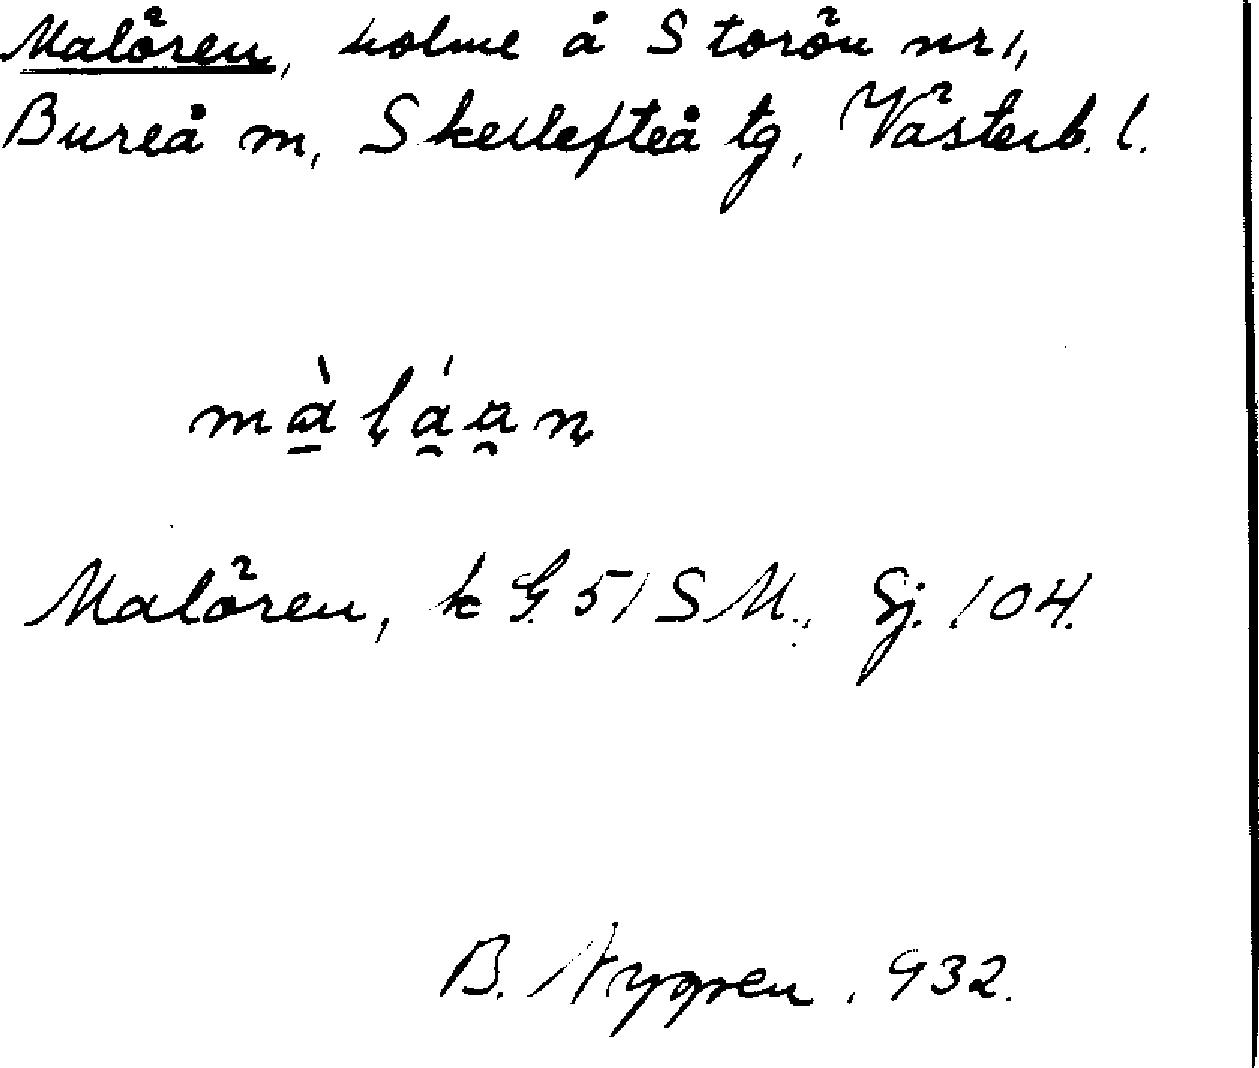 Malören, holme å Storön nr 1,
Bureå m, Skellefteå tg, Västerb. l.
Malören, k G. 51 SM., Sj. 104.
B. Nygren. 932.